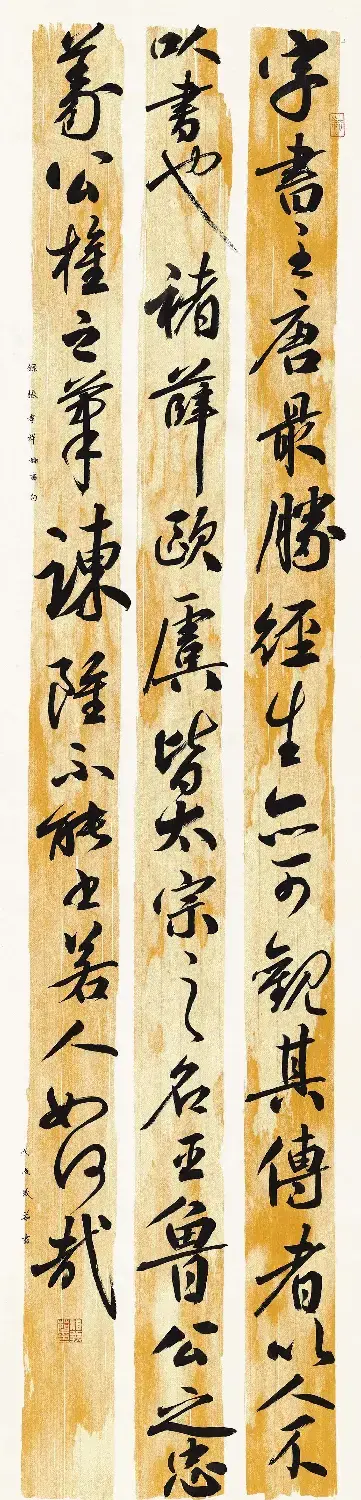 字書至唐最勝經生亦可觀其傳者以人不
以書也褚薛歐虞皆太宗之名臣魯公之忠
義公權之筆諫雖不能書若人如何哉